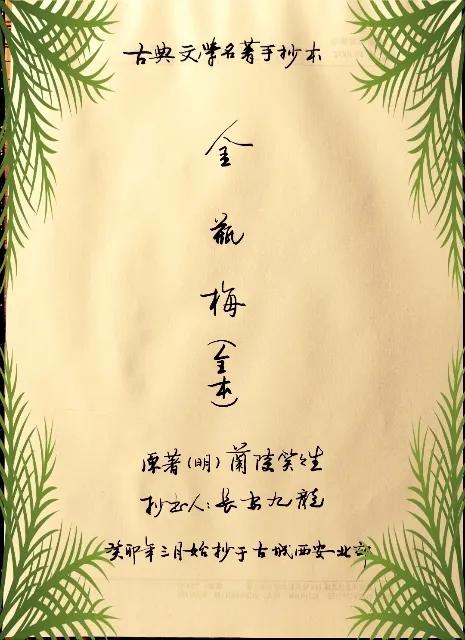 古典文学名著手抄本
金
瓶
梅
(全
本)
原著(明)蘭陵笑笑生
抄书人:長安九龍
癸卯年三月始抄于古城西安北郊